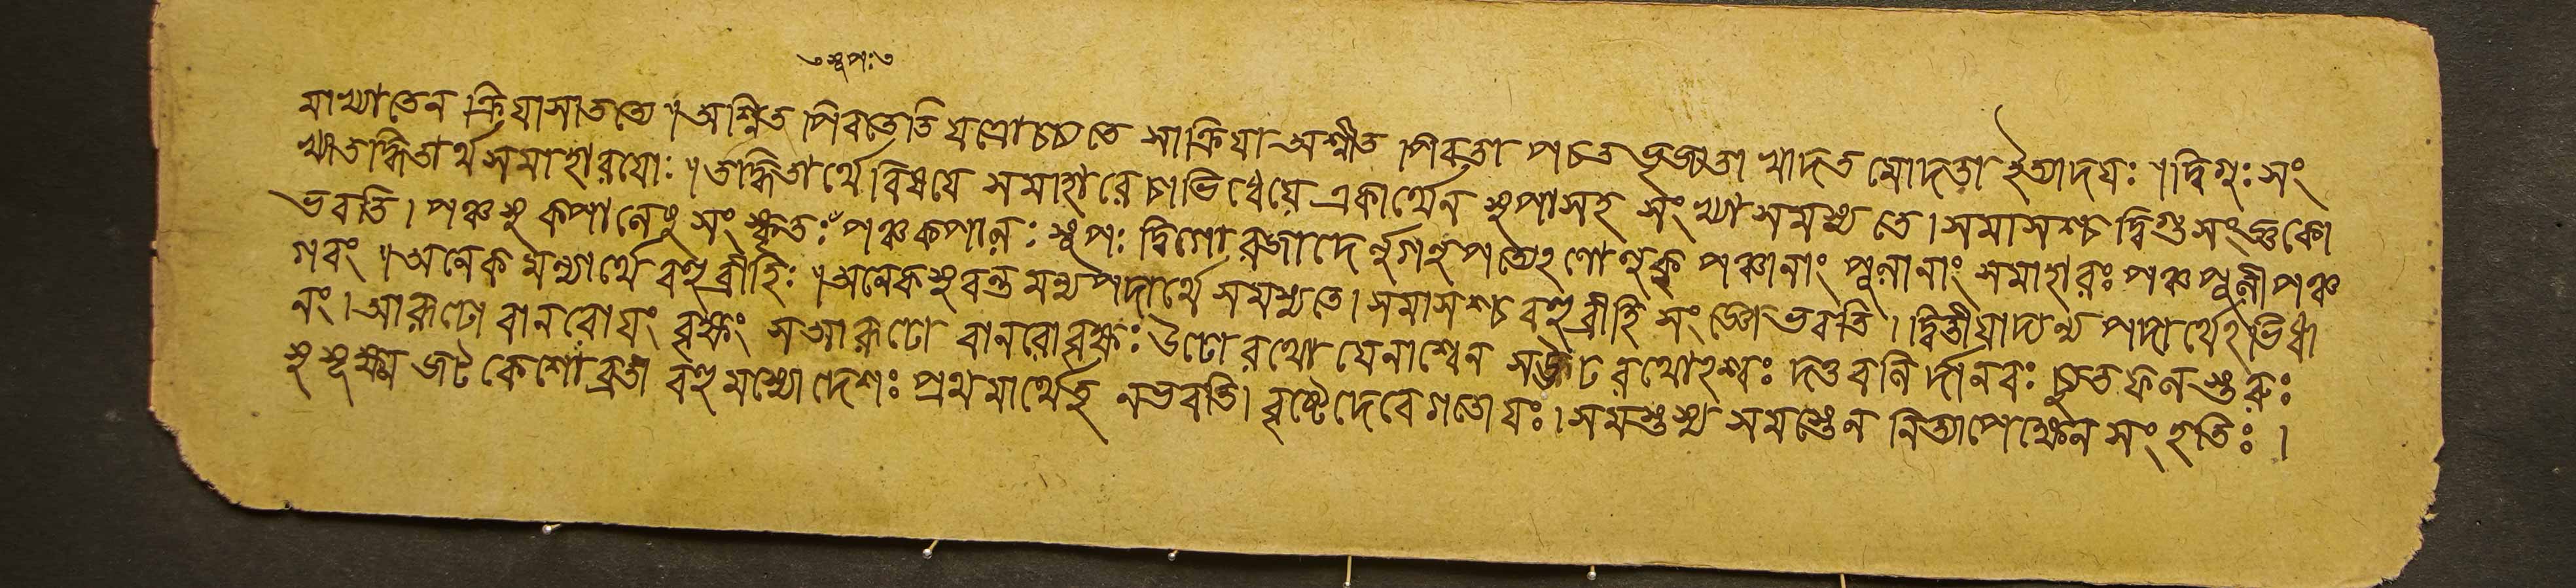 সুপঃ
মাখ্যাতেন ক্রিযাসাতত্যে ॥ অশ্নিত পিবতেতি যত্রোচ্যতে সাক্রিযা অশ্নীত পিবতা পচত ভৃজ্জতা খাদত মোদতা ইত্যাদযঃ ॥ দ্বিগুঃ সং
খ্যাতদ্ধিতার্থসমাহারযোঃ ॥ তদ্ধিতার্থে বিষযে সমাহারে চাভিধেয়ে একার্থেন সুপাসহ সংখ্যা সমস্যতে । সমাসশ্চ দ্বিগুসংজ্ঞকো
ভবতি । পঞ্চসু কপালেষু সংস্কৃতঃ পঞ্চকপালঃ সুপঃ দ্বিগোরজাদের্লুগনপত্যেঽণো লুক্ পঞ্চানাং পুলানাং সমাহারঃ পঞ্চপুলী পঞ্চ
গবং ॥ অনেক মন্যার্থে বহুব্রীহিঃ ॥ অনেকসুবন্ত মন্যপদার্থে সমস্যতে । সমাসশ্চ বহুব্রীহি সংজ্ঞোভবতি । দ্বিতীযাদ্যন্য পদার্থেঽভিধা
নং । আরূঢো বানরোযং বৃক্ষং সআরূঢো বানরোবৃক্ষঃ উঢো রথো যেনাশ্বেন সঊঢ রথোঽশ্বঃ দত্তবলির্দানবঃ চ্যুত ফলস্তরুঃ
সুসূক্ষ্ম জট কেশো ব্রতী বহুমৎস্যো দেশঃ প্রথমার্থেতু নভবতি । বৃষ্টেদেবে গতোযঃ । সমস্তস্য সমস্তেন নিত্যাপেক্ষেন সংহতিঃ ।